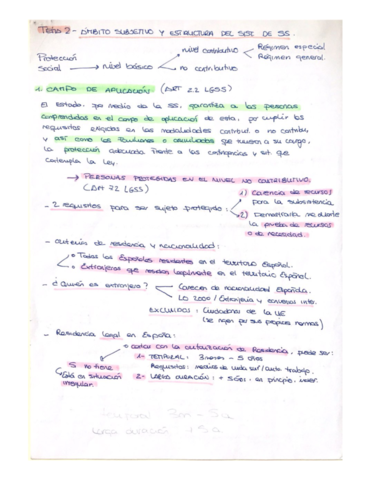 Tema 2 - ÁMBITO SUBJETIVO Y ESTRUCTURA DEL SIST. DE SS.
nivel contributivo
Régimen especial
Régimen general.
Protección
Social
nivel básico
no contributivo
1. CAMPO DE APLICACIÓN (ART 7.2 LGSS)
El estado, por medio de la SS, garantiza a las personas
comprendidas en el campo de aplicación de esta, por cumplir los
requisitos exigidos en las modalidades contribut. o no contribu,
y así como los familiares o asimilados que tuviera a su cargo,
la protección adecuada frente a las contingencias y sit. que
contempla la Ley.
PERSONAS PROTEGIDAS EN EL NIVEL NO CONTRIBUTIVO
(ART 7.2 LGSS)
1) Carencia de recursos
para la subsistencia
- 2 requisitos para ser sujeto protegido:
2) Demostrarla mediante
la prueba de recursos
o de necesidad.
- Criterios de residencia y nacionalidad:
Todos los Españoles residentes en el territorio Español.
Extranjeros que residan legalmente en el territorio Español.
- ¿Quién es extranjero?
Carecen de nacionalidad Española.
LO 2000 / Extranjería y convenios inter.
EXCLUIDOS: Ciudadanos de la UE
(se rigen por sus propias normas)
- Residencia Legal en España:
contar con la autorización de Residencia, puede ser:
1- TEMPORAL: 3 meses - 5 años
Requisitos: medios de vida suf / cuenta trabajo.
2- LARGA DURACIÓN: + 5 años
Si no tiene:
Está en situación
irregular.